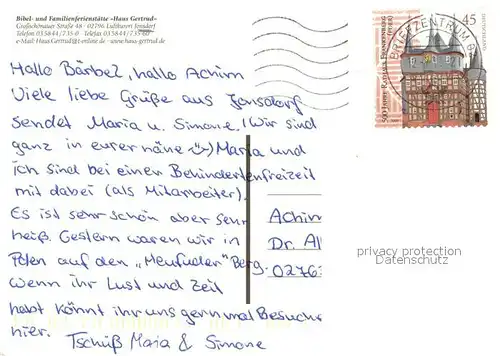 Bibel- und Familienferienstätte »Haus Gertrud«
Großschönauer Straße 48 · 02796 Luftkurort Jonsdorf
Telefon 035844/735-0 Telefax 035844/735-60
e-Mail: Haus.Gertrud@t-online.de · www.haus-gertrud.de
Hallo Bärbel, hallo Achim
Viele liebe Grüße aus Jonsdorf
sendet Maria u. Simone. (Wir sind
ganz in eurer näne ☺) Maria und
ich sind bei einer Behindertenfreizeit
mit dabei (als Mitarbeiter).
Es ist sehr schön aber sehr
heiß. Gestern waren wir in
Polen auf den „Heufuder" Berg.
Wenn ihr Lust und Zeit
habt könnt ihr uns gern mal Besuche
hier.
Tschüß Maria & Simone
Achim
Dr. Al
0276
500 Jahre Rathaus Frankenberg
(Eder)
45
DEUTSCHLAND
BRIEFZENTRUM
privacy protection
Datenschutz